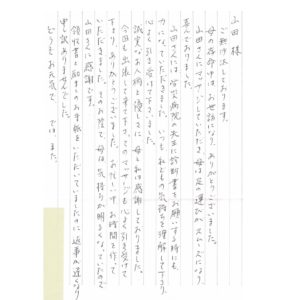 山田様
ご無沙汰しております。
母の存命中は、お世話になり、ありがとうございました。
山田さんにマッサージしていただき、母は足の運びがスムーズになり、
喜んでおりました。
山田さんには労災病院の先生に診断書をお願いする時にも、
力になっていただきました。いつも私どもの気持ちを理解して下さり、
心よく引き受けて下さいました。
誠実なお人柄と優しさに、母と私は感謝しておりました。
今回も出張って来て下さり、マッサージも心よく引き受けて
下さり、お忙しい中、お時間を作って
いただきました。そのお陰で、母は気持ちが明るくなっていたので
山田さんに感謝です。
領収書と励ましのお手紙をいただいていましたのに、返事が遅くなり
申し訳ありませんでした。
どうぞお元気で。では、また。